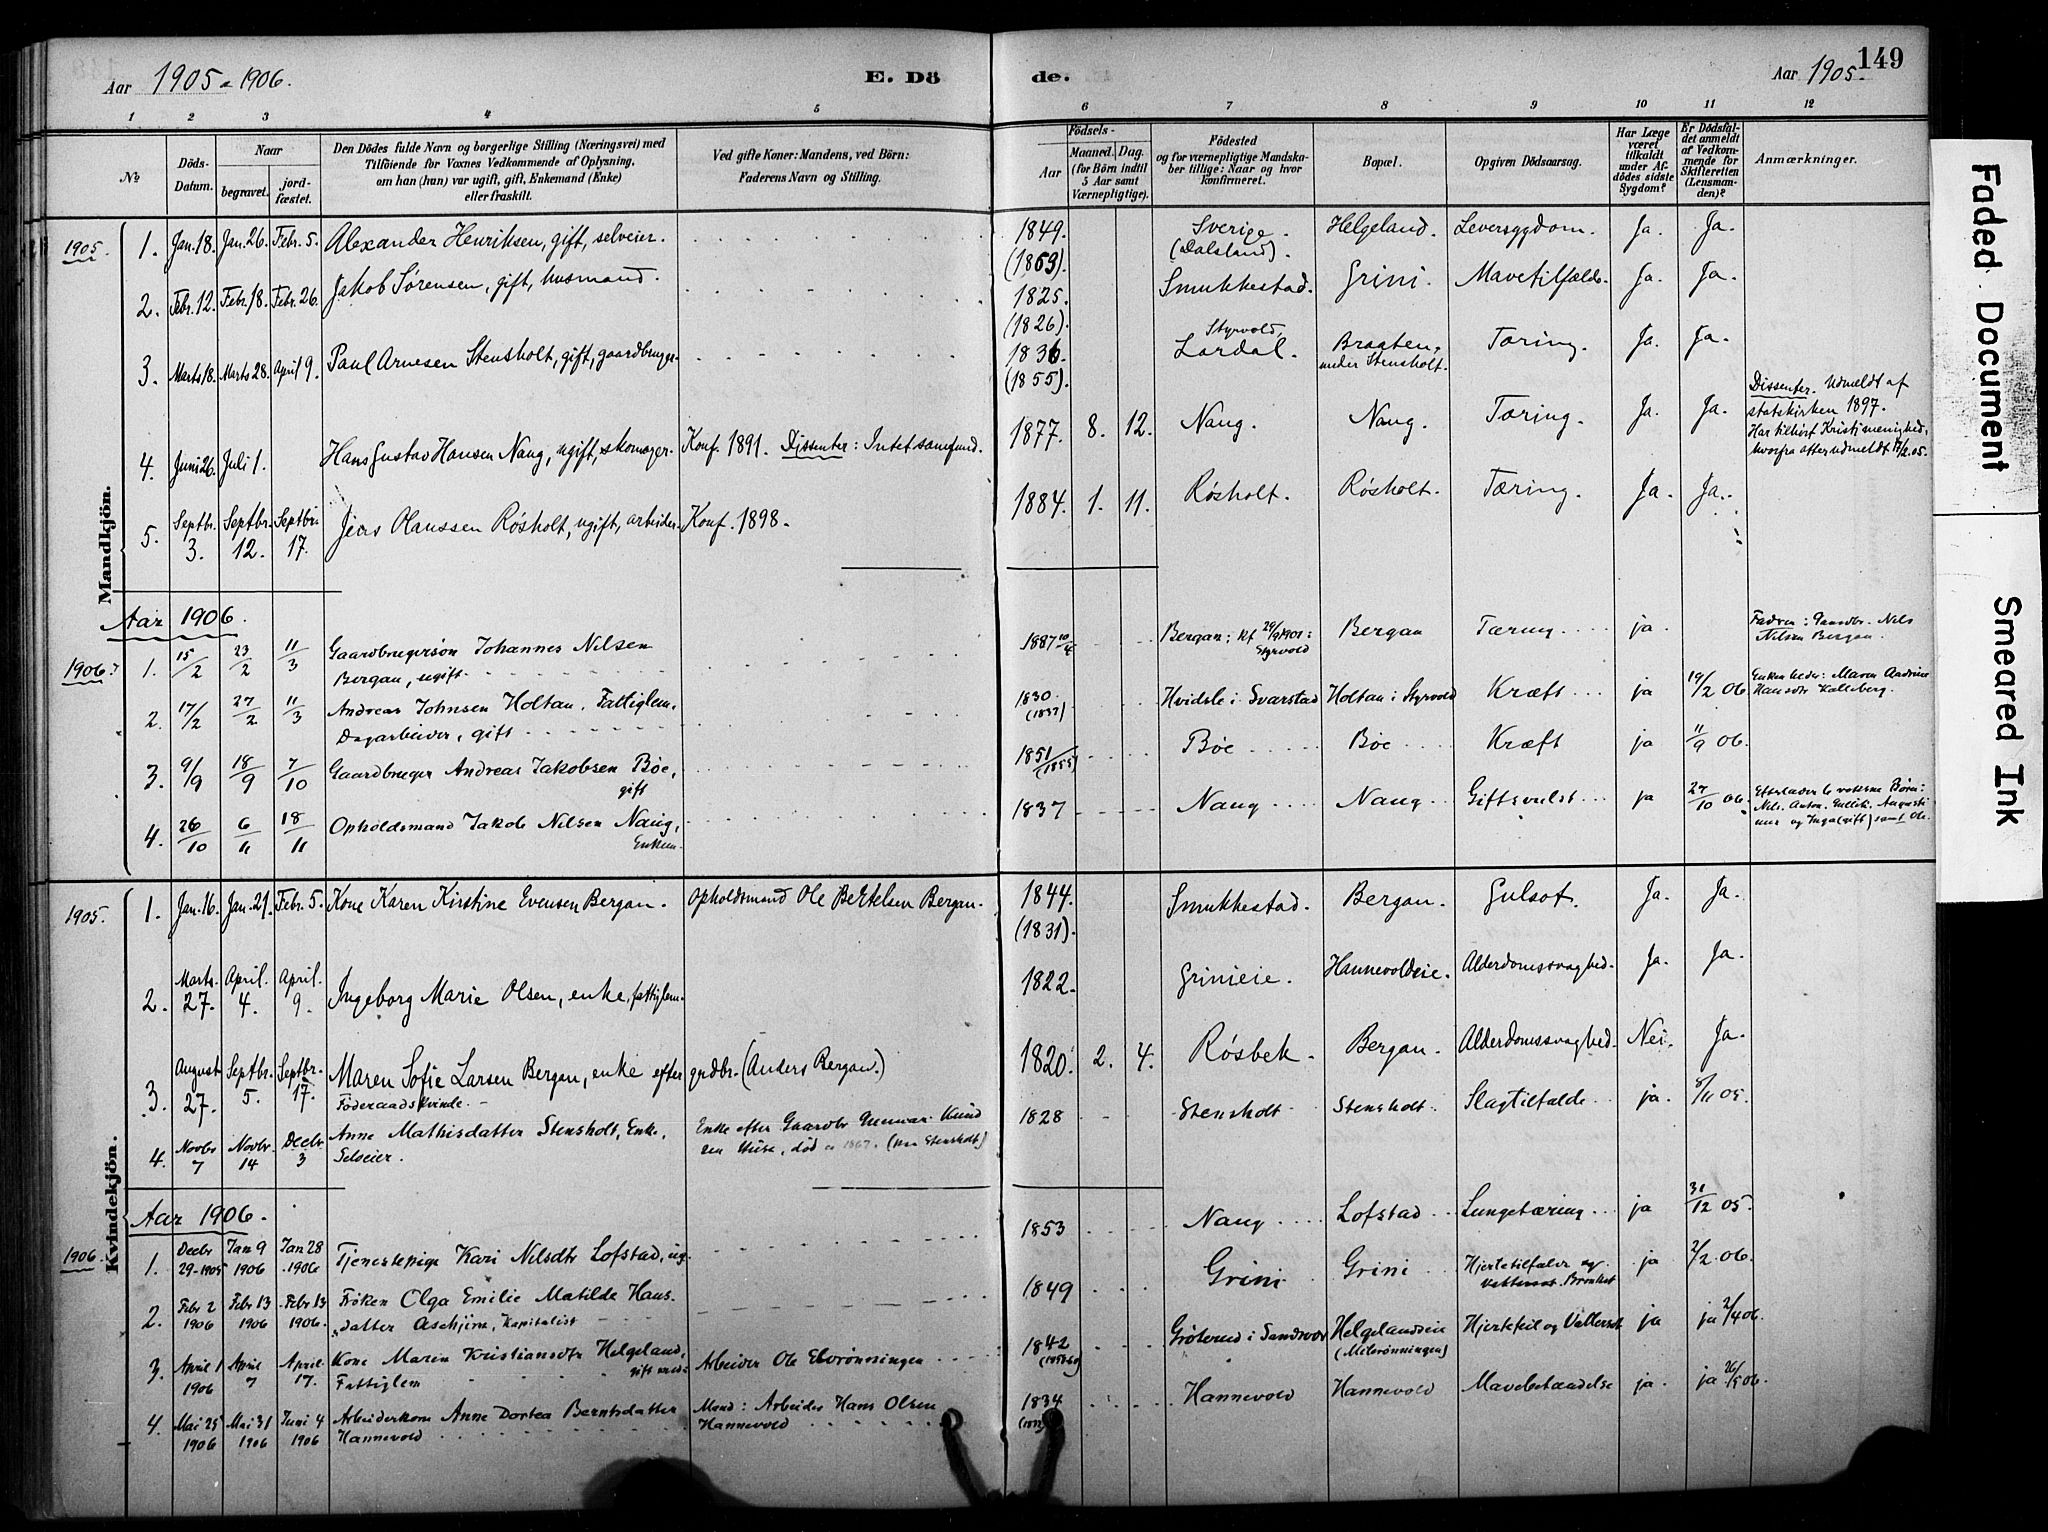 Aar 1905 - 1906. E. Dö de. Aar 1905 - 149
1 2 3 4 5 6 7 8 9 10 11 12
No
Döds-Datum.
Naar
begravet.
jord-fæstet.
Den Dödes fulde Navn og borgerlige Stilling (Næringsvei) med
Tilföiende for Voxnes Vedkommende af Oplysning,
om han (hun) var ugift, gift, Enkemand (Enke)
eller fraskilt.
Ved gifte Koner: Mandens, ved Börn:
Faderens Navn og Stilling.
Födsels-
Aar
Maaned. Dag.
(for Börn indtil
5 Aar samt
Værnepligtige).
Födested
og for værnepligtige Mandska-
ber tillige: Naar og hvor
konfirmeret.
Bopæl.
Opgiven Dödsaarsag.
Har Læge
været
tilkaldt
under Af-
dödes sidste
Sygdom?
Er Dödsfal-
det anmeldt
af Vedkom-
mende for
Skifteretten
(Lensman-
den)?
Anmærkninger.
Mandkjön.
1905 1. Jan. 18. Jan. 26. Febr. 5. Alexander Henriksen, gift, selveier. 1849. (1853). Sverige. (Dalsland). Helgeland. Leversygdom. Ja. Ja.
2. Febr. 12. Febr. 18. Febr. 26. Jakob Sørensen, gift, husmand. 1825. (1826). Smukkestad. Grini. Mavetilfælde. Ja. Ja.
3. Marts 18. Marts 28. April 9. Paul Arnesen Stensholt, gift, gaardbruger. 1836. (1855). Styrvold, Lardal. Braaten, under Stensholt. Tæring. Ja. Ja.
4. Juni 26. Juli 1. Hans Gustav Hansen Naug, ugift, skomager. Konf. 1891. Dissenter: Intet samfund. 1877. 8. 12. Naug. Naug. Tæring. Ja. Ja. Dissenter. Udmeldt af
statskirken 1897.
Har tilhørt Kristi menighed,
hvorfra atter udmeldt 05.
5. Septbr. 3. Septbr. 12. Septbr. 17. Jens Olaussen Røsholt, ugift, arbeider. Konf. 1898. 1884. 1. 11. Røsholt. Røsholt. Tæring. Ja. Ja.
Aar 1906.
1906 1. 15/2 23/2 11/3 Gaardbrugersøn Johannes Nilsen
Bergan, ugift 1887 10/4 Bergan; kf 29/9 1901: Styrvold Bergan Tæring ja. Fadren: Gaardbr. Nils
Nilsen Bergan.
2. 17/2 27/2 11/3 Andreas Johnsen Holtan, Fattiglem,
Dagarbeider, gift 1830. (1832) Hvidsle i Svarstad Holtan i Styrvold Kræft ja 19/2 06. Enken heder: Maren Andrine
Hansdtr Kalleberg.
3. 9/9 18/9 7/10 Gaardbruger Andreas Jakobsen Bøe,
gift 1851/(1855) Bøe Bøe Kræft ja 11/9 06.
4. 26/10 6/11 18/11 Opholdsmand Jakob Nilsen Naug,
Enkem. 1837 Naug Naug Giftsvulst ja 27/10 06. Efterlader 6 voksne Børn:
Nils, Anton, Gullik, Augusti
nus og Inga (gift) samt Ole.
Kvindekjön.
1905. 1. Jan. 16. Jan. 21. Febr. 5. Kone Karen Kirstine Evensen Bergan. Opholdsmand Ole Bertelsen Bergan. 1844. (1831). Smukkestad. Bergan. Gulsot. Ja. Ja.
2. Marts 27. April 4. April 9. Ingeborg Marie Olsen, enke, fattiglem. 1822. Grinieie. Hannevoldeie. Alderdomssvaghed. Ja. Ja.
3. August 27. Septbr. 5. Septbr. 17. Maren Sofie Larsen Bergan, enke efter grdbr. (Anders Bergan.)
Føderaadskvinde. 1820. 2. 4. Røsbek. Bergan. Alderdomssvaghed. Nei. Ja.
4. Novbr 7 Novbr. 14 Decbr 3 Anne Mathisdatter Stensholt, Enke,
Selveier. Enke efter Gaardbr Gunnar Knud
sen Huse, død 1867. (paa Stensholt) 1828 Stensholt Stensholt Slagtilfælde ja. 8/11 05.
Aar 1906.
1906 1. Decbr 29-1905 Jan 9 1906 Jan 28 1906 Tjenestepige Kari Nilsdtr Lofstad, ug. 1853 Naug Lofstad Lungetæring ja 31/12 05.
2. Febr 2 1906 Febr 13 1906 Febr 13 1906. Frøken Olga Emilie Matilde Hans-
datter Aschjem, Kapitalist 1849 Grini Grini Hjertetilfælde og
Vattersot. Bronkit ja 2/2 06.
3. April 1 1906 April 7 April 17. Kone Maren Kristiansdtr Helgeland, gift med:
Fattiglem Arbeider Ole Elvrønningen 1842 Grøterud i Sandsvær Helgelandseie
(Melrønningen) Hjertefeil og Vattersot ja ja 2/4 06.
4. Mai 25 1906 Mai 31 1906 Juni 4 1906 Arbeiderkone Anne Dortea Berntsdatter
Hannevold Mand: Arbeider Hans Olsen
Hannevold 1834 Hannevold Hannevold Mavebetændelse ja. ja 26/5 06.
Faded Document
Smeared Ink